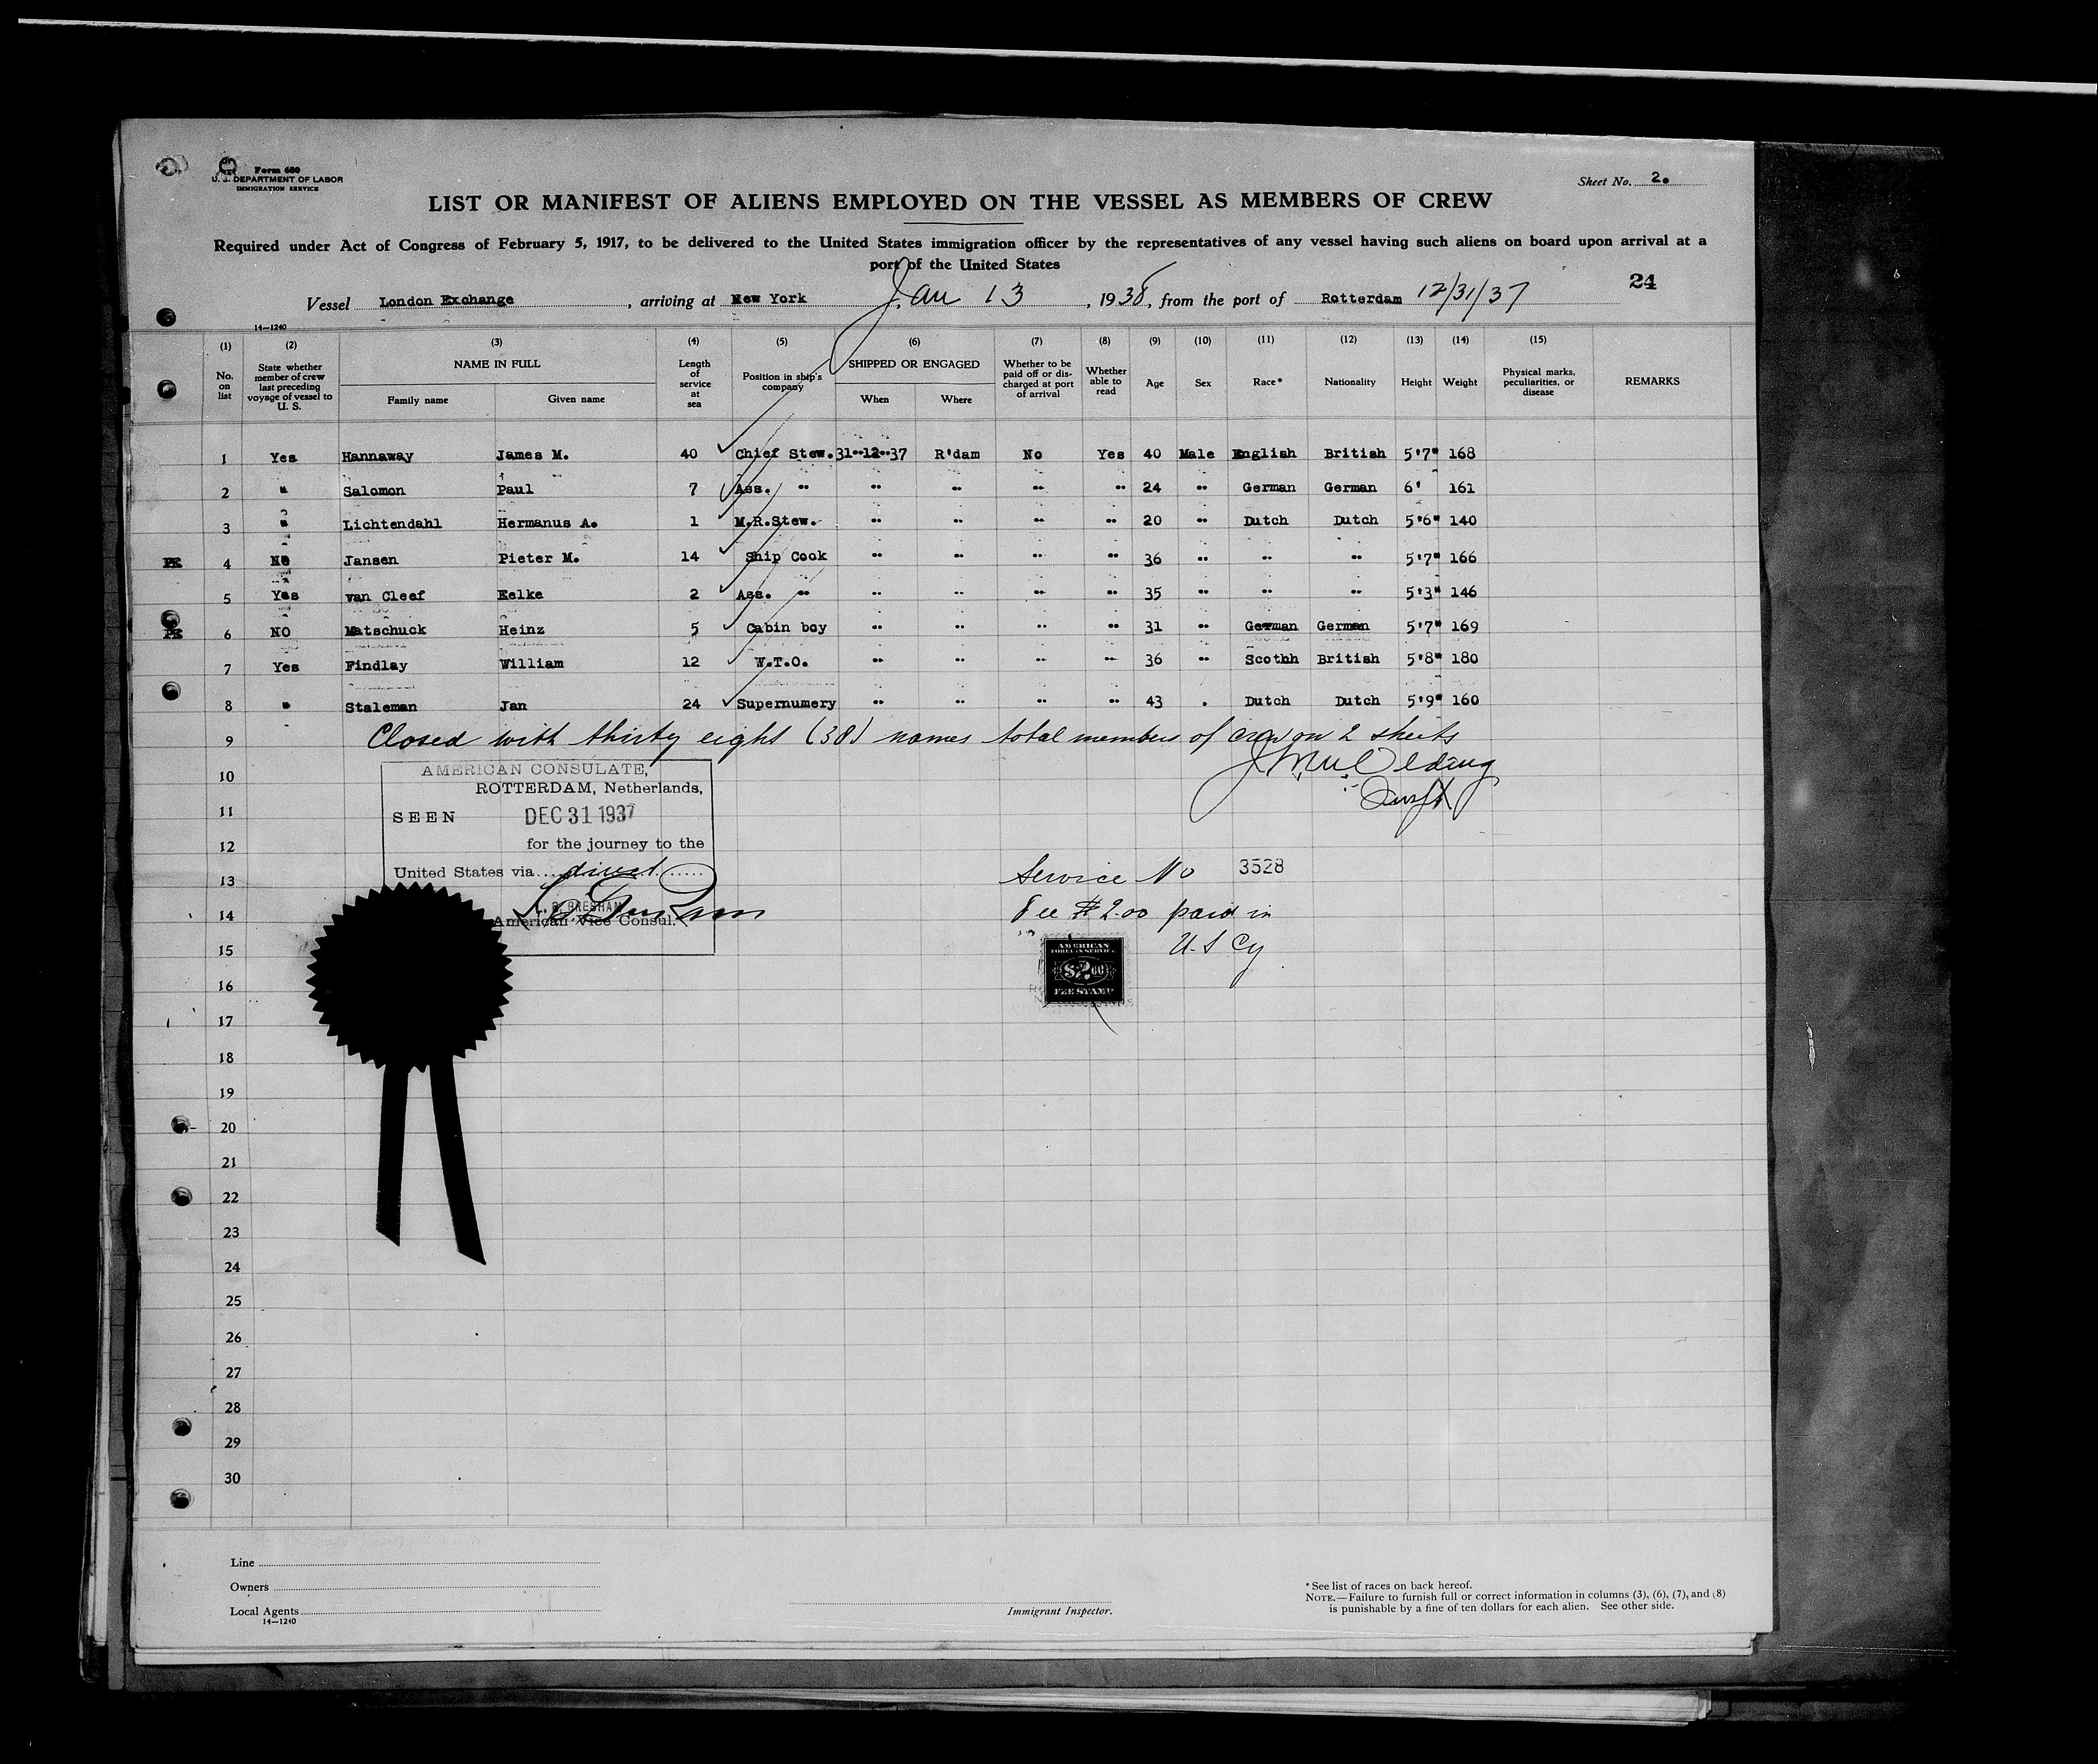 Form 680
U. S. DEPARTMENT OF LABOR
IMMIGRATION SERVICE
Sheet No. 2.
LIST OR MANIFEST OF ALIENS EMPLOYED ON THE VESSEL AS MEMBERS OF CREW
Required under Act of Congress of February 5, 1917, to be delivered to the United States immigration officer by the representatives of any vessel having such aliens on board upon arrival at a
port of the United States
24
Vessel London Exchange, arriving at New York Jan 13, 1938, from the port of Rotterdam 12/31/37
14—1240
(1) No. on list
(2) State whether member of crew last preceding voyage of vessel to U. S.
(3) NAME IN FULL Family name Given name
(4) Length of service at sea
(5) Position in ship's company
(6) SHIPPED OR ENGAGED When Where
(7) Whether to be paid off or discharged at port of arrival
(8) Whether able to read
(9) Age
(10) Sex
(11) Race*
(12) Nationality
(13) Height
(14) Weight
(15) Physical marks, peculiarities, or disease
REMARKS
1 Yes Hannaway James M. 40 Chief Stew. 31-12-37 R'dam No Yes 40 Male English British 5'7" 168
2 " Salomon Paul 7 Ass. " " " " " 24 " German German 6' 161
3 " Lichtendahl Hermanus A. 1 M.R.Stew. " " " " 20 " Dutch Dutch 5'6" 140
PR 4 No Jansen Pieter M. 14 Ship Cook " " " " 36 " " " 5'7" 166
5 Yes van Cleef Eelke 2 Ass. " " " " " 35 " " " 5'3" 146
PR 6 NO Matschuck Heinz 5 Cabin boy " " " " 31 " German German 5'7" 169
7 Yes Findlay William 12 W.T.O. " " " " 36 " Scothh British 5'8" 180
8 " Staleman Jan 24 Supernumery " " " " 43 . Dutch Dutch 5'9" 160
9 Closed with thirty eight (38) names total members of crew on 2 sheets
10
11
12
13
14
15
16
17
18
19
20
21
22
23
24
25
26
27
28
29
30
AMERICAN CONSULATE,
ROTTERDAM, Netherlands,
SEEN DEC 31 1937
for the journey to the
United States via direct
American Vice Consul.
Service No 3528
Fee $2.00 paid in
U.S Cy
AMERICAN
FOREIGN SERVICE
$2.00
FEE STAMP
Line
Owners
Local Agents
14—1240
Immigrant Inspector.
* See list of races on back hereof.
NOTE.—Failure to furnish full or correct information in columns (3), (6), (7), and (8)
is punishable by a fine of ten dollars for each alien. See other side.